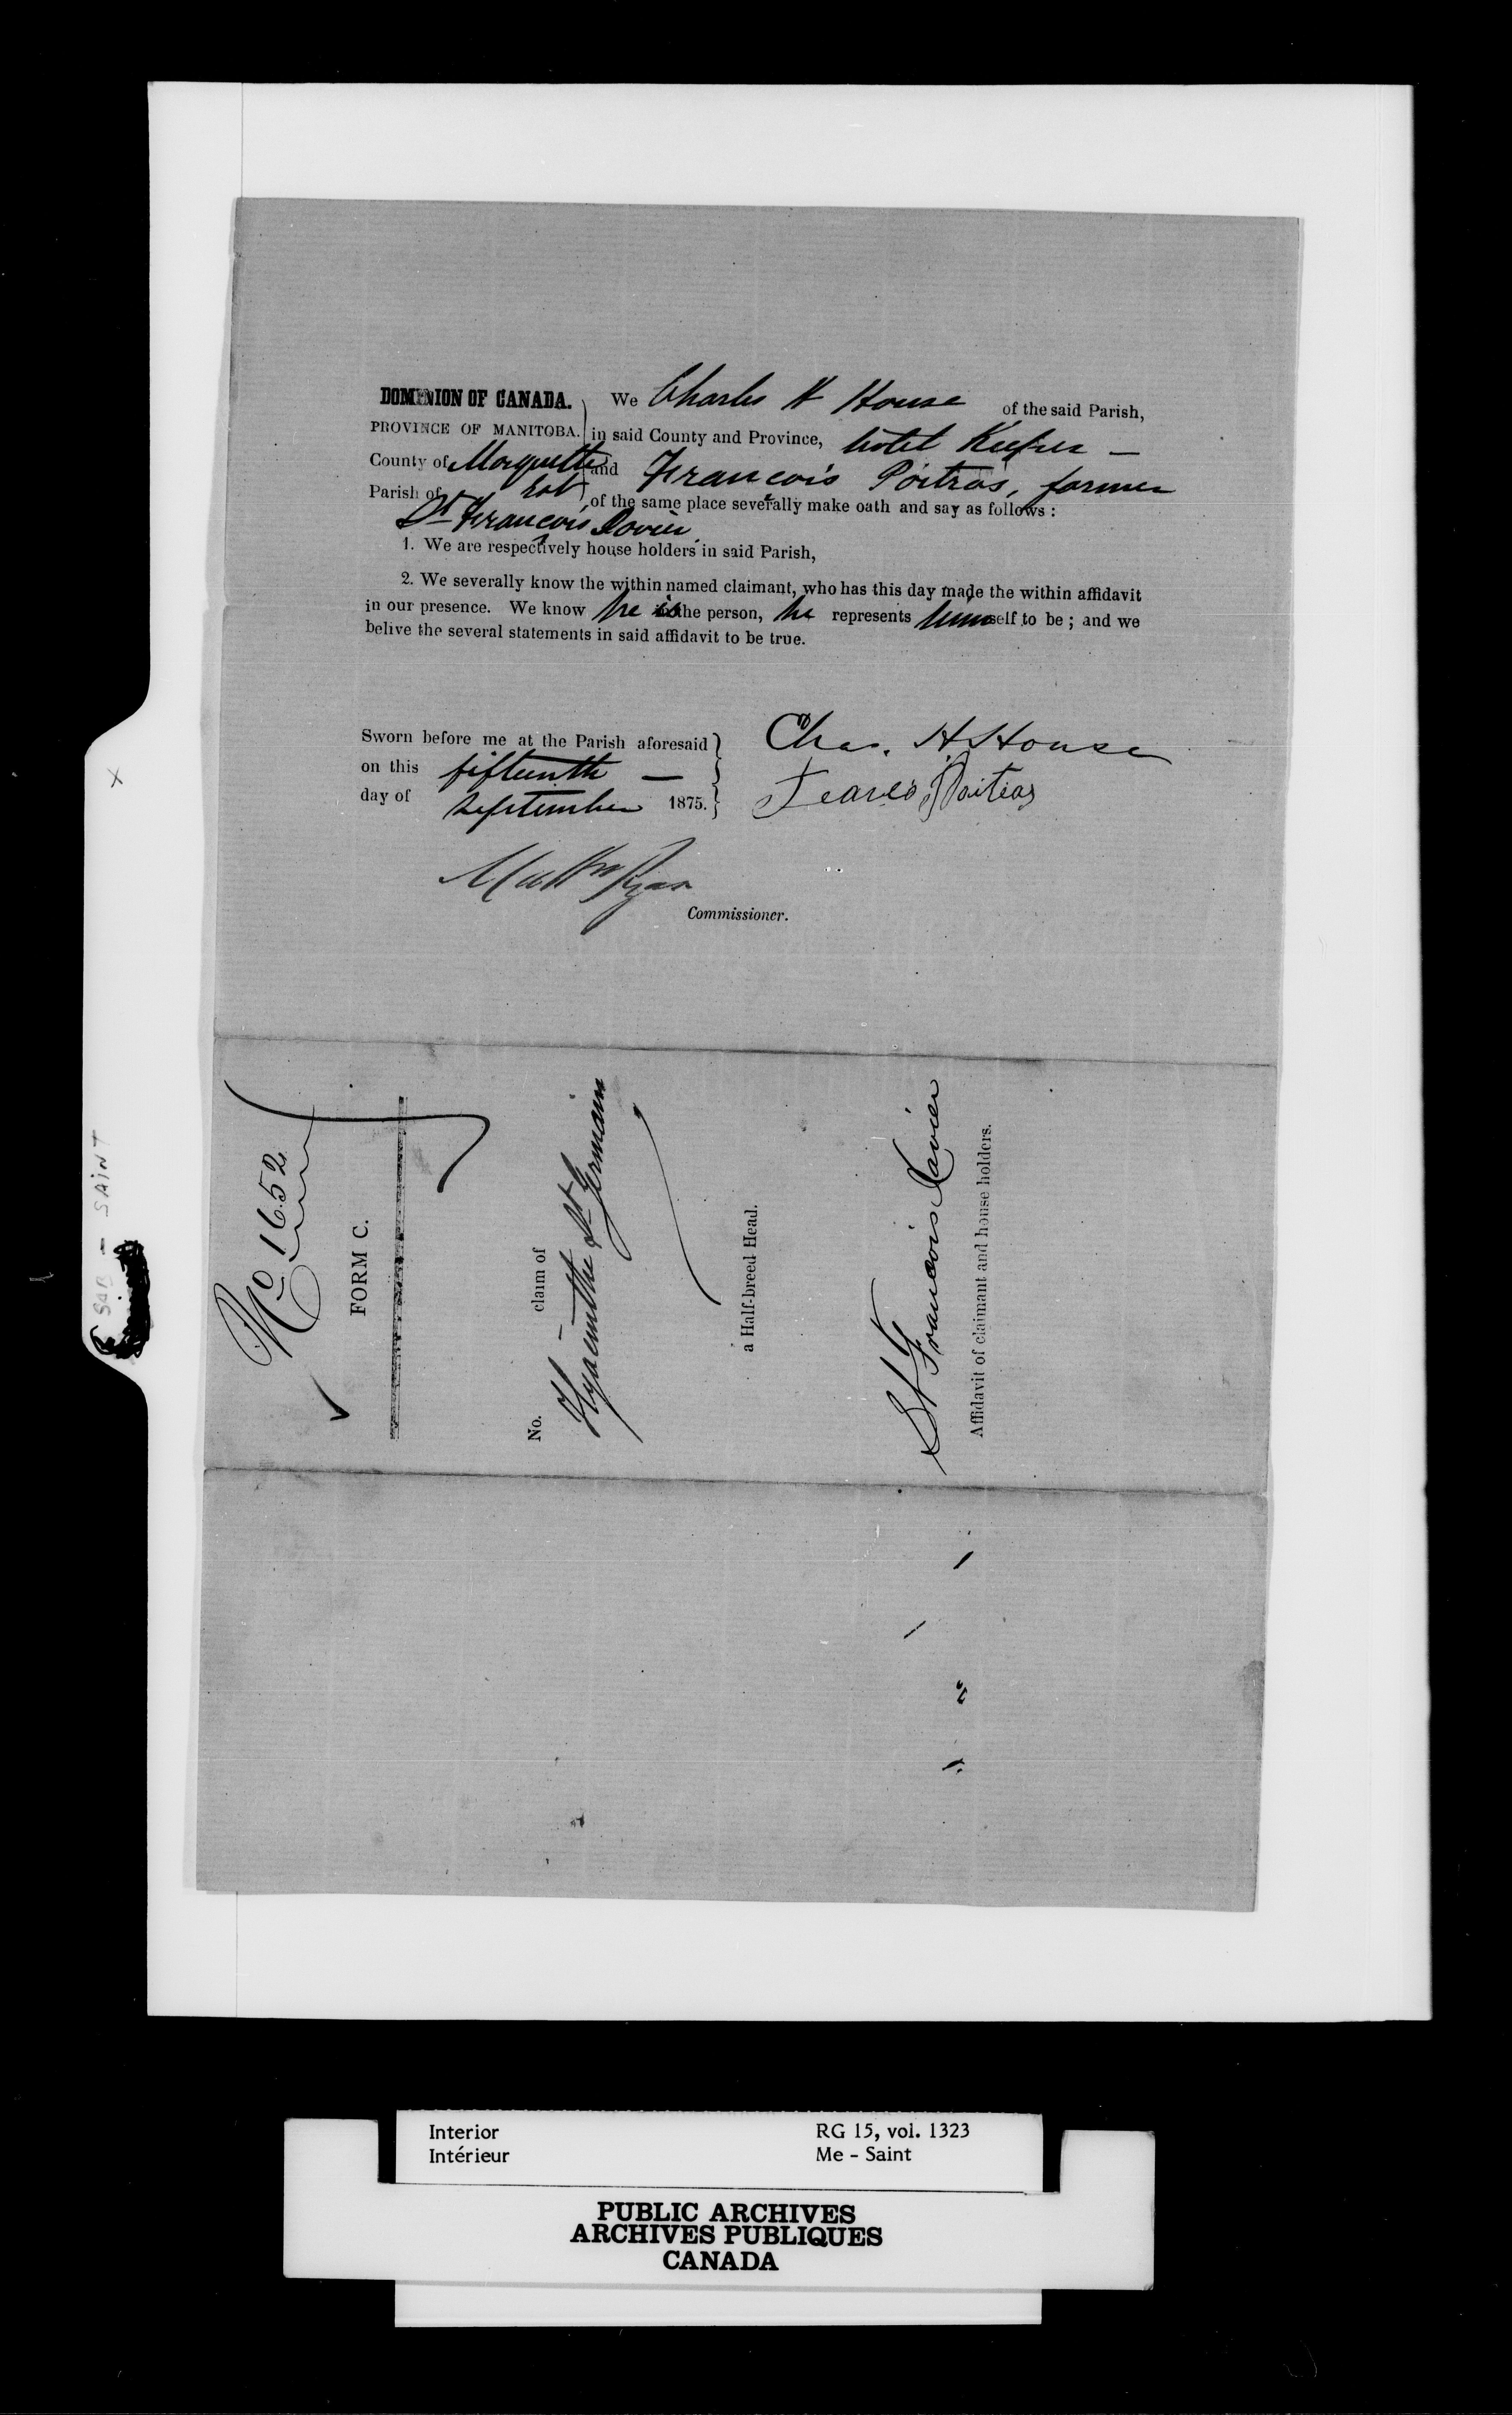 DOMINION OF CANADA.
PROVINCE OF MANITOBA.
County of Marquette
Parish of Est
St François Xavier
We Charles H House of the said Parish,
in said County and Province, hotel Keeper —
and Francois Poitras, farmer
of the same place severally make oath and say as follows :
1. We are respectively house holders in said Parish,
2. We severally know the within named claimant, who has this day made the within affidavit
in our presence. We know he is the person, he represents himself to be ; and we
belive the several statements in said affidavit to be true.
Sworn before me at the Parish aforesaid
on this fifteenth —
day of September 1875.
Chas. H House
Poitras
Matt Ryan
Commissioner.
No 1652
FORM C.
No. — claim of
Hyacinthe St Germain
a Half-breed Head.
St Francois Xavier
Affidavit of claimant and house holders.
SAB - SAINT
X
Interior
Intérieur
RG 15, vol. 1323
Me - Saint
PUBLIC ARCHIVES
ARCHIVES PUBLIQUES
CANADA